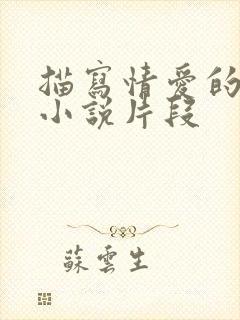 描寫情愛的
小說片段
蘇雲生